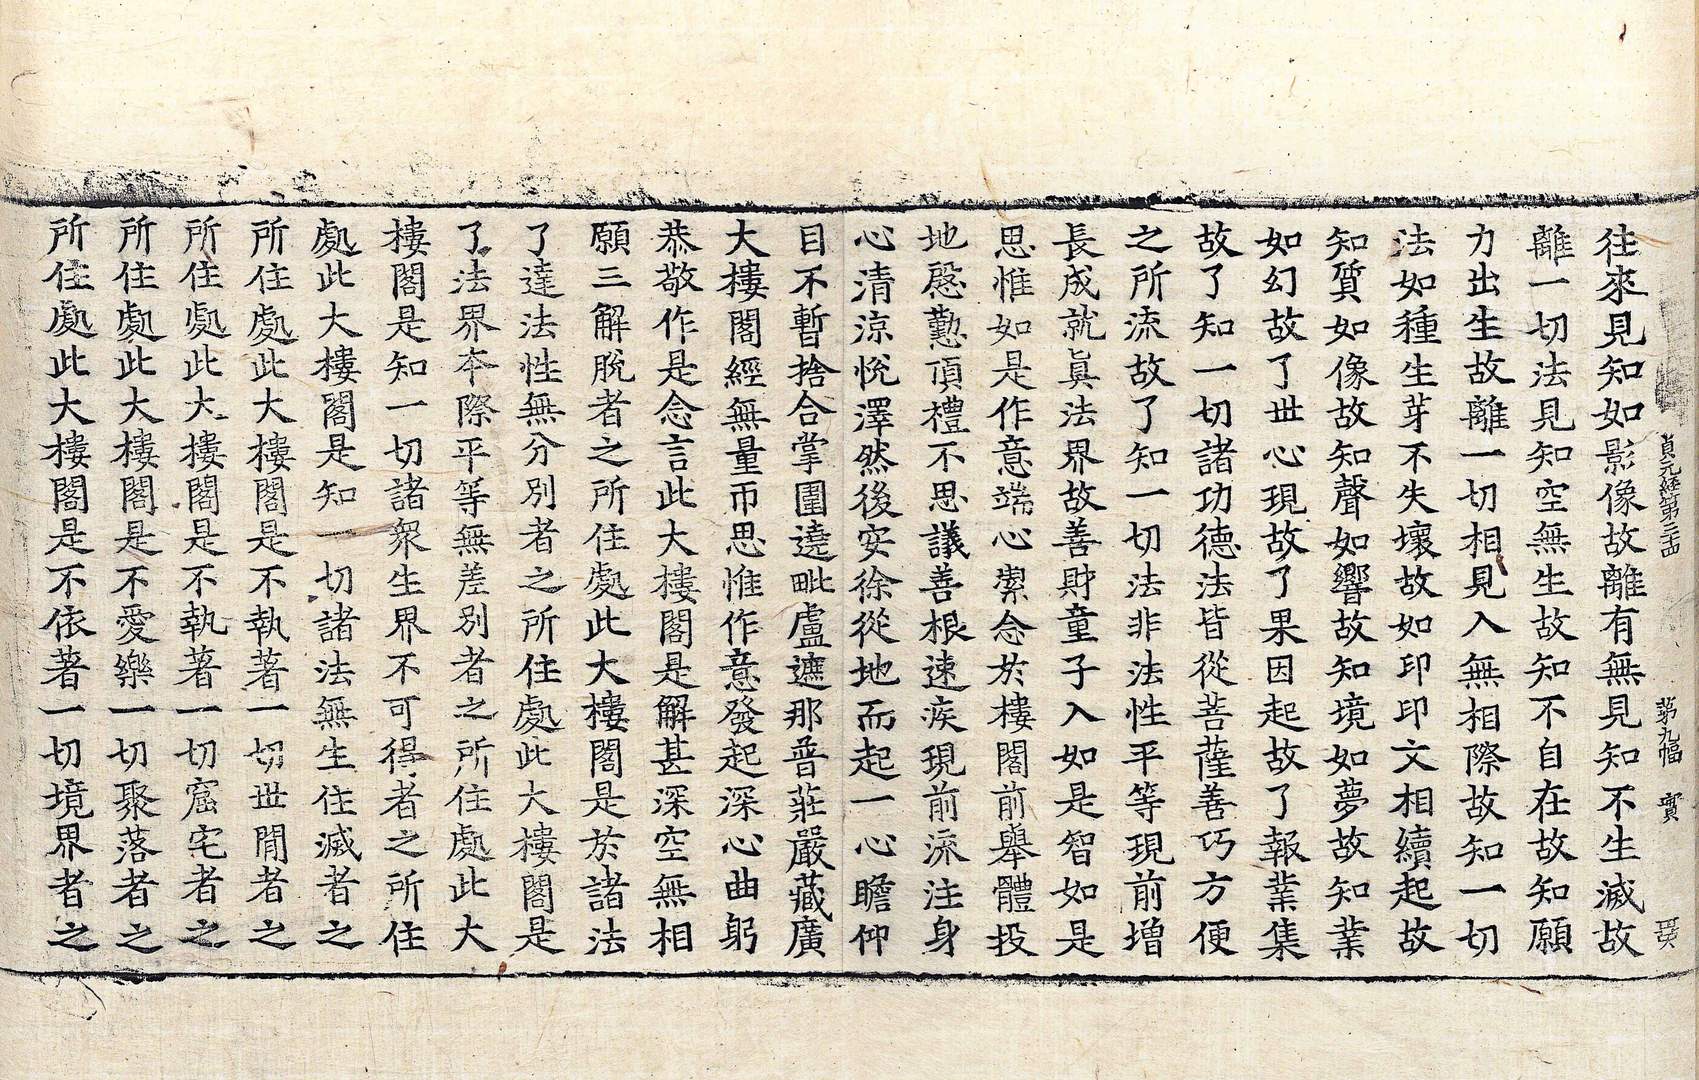 貞元経第三十四 第九幅 實
往來見知如影像故離有無見知不生滅故
離一切法見知空無生故知不自在故知願
力出生故離一切相見入無相際故知一切
法如種生芽不失壞故如印印文相續起故
知質如像故知聲如響故知境如夢故知業
如幻故了世心現故了果因起故了報業集
故了知一切諸功德法皆從菩薩善巧方便
之所流故了知一切法非法性平等現前增
長成就眞法界故善財童子入如是智如是
思惟如是作意端心潔念於樓閣前舉體投
地慇懃頂禮不思議善根速疾現前流注身
心清涼悅澤然後安徐從地而起一心瞻仰
目不暫捨合掌圍遶毗盧遮那普莊嚴藏廣
大樓閣經無量帀思惟作意發起深心曲躬
恭敬作是念言此大樓閣是解甚深空無相
願三解脫者之所住處此大樓閣是於諸法
了達法性無分別者之所住處此大樓閣是
了法界本際平等無差別者之所住處此大
樓閣是知一切諸衆生界不可得者之所住
處此大樓閣是知一切諸法無生住滅者之
所住處此大樓閣是不執著一切世間者之
所住處此大樓閣是不執著一切窟宅者之
所住處此大樓閣是不愛樂一切聚落者之
所住處此大樓閣是不依著一切境界者之